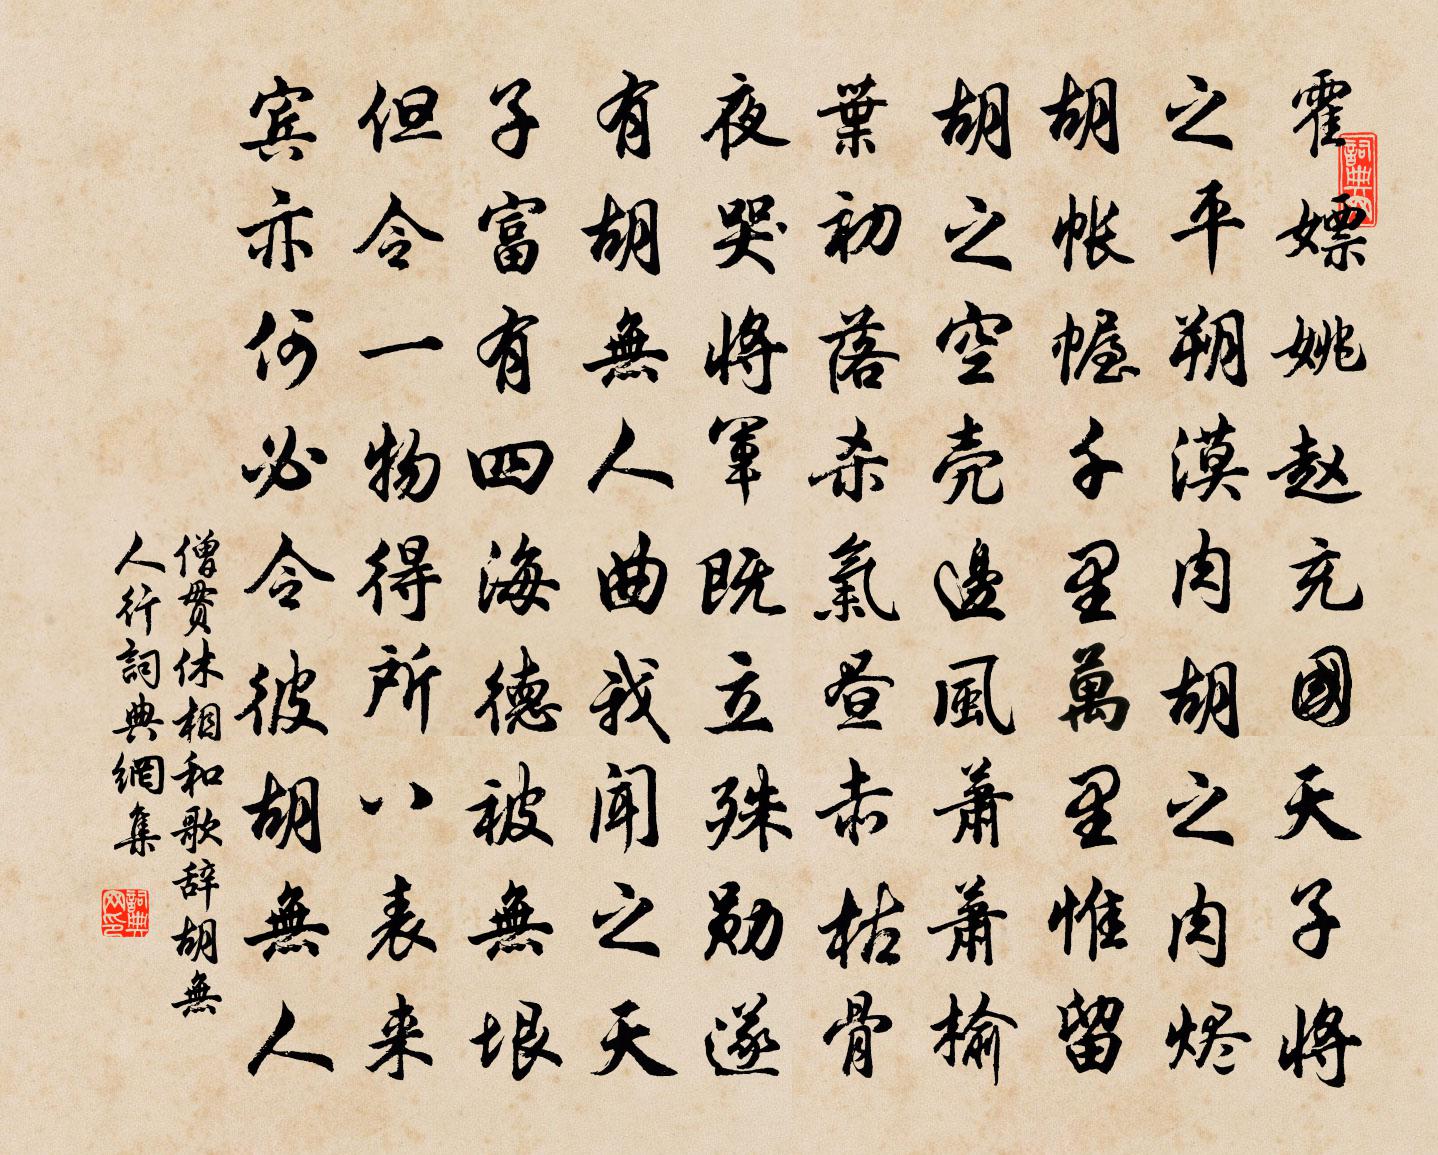 霍嫖姚赵充國天子將
之平朔漠肉胡之肉烬
胡帐幄千里萬里惟留
胡之空壳邊風萧萧榆
葉初落杀氣昼赤枯骨
夜哭將軍既立殊勋遂
有胡無人曲我闻之天
子富有四海德被無垠
但令一物得所八表来
宾亦何必令彼胡無人
僧贯休相和歌辞胡無
人行詞典網集
詞典网
詞典网印